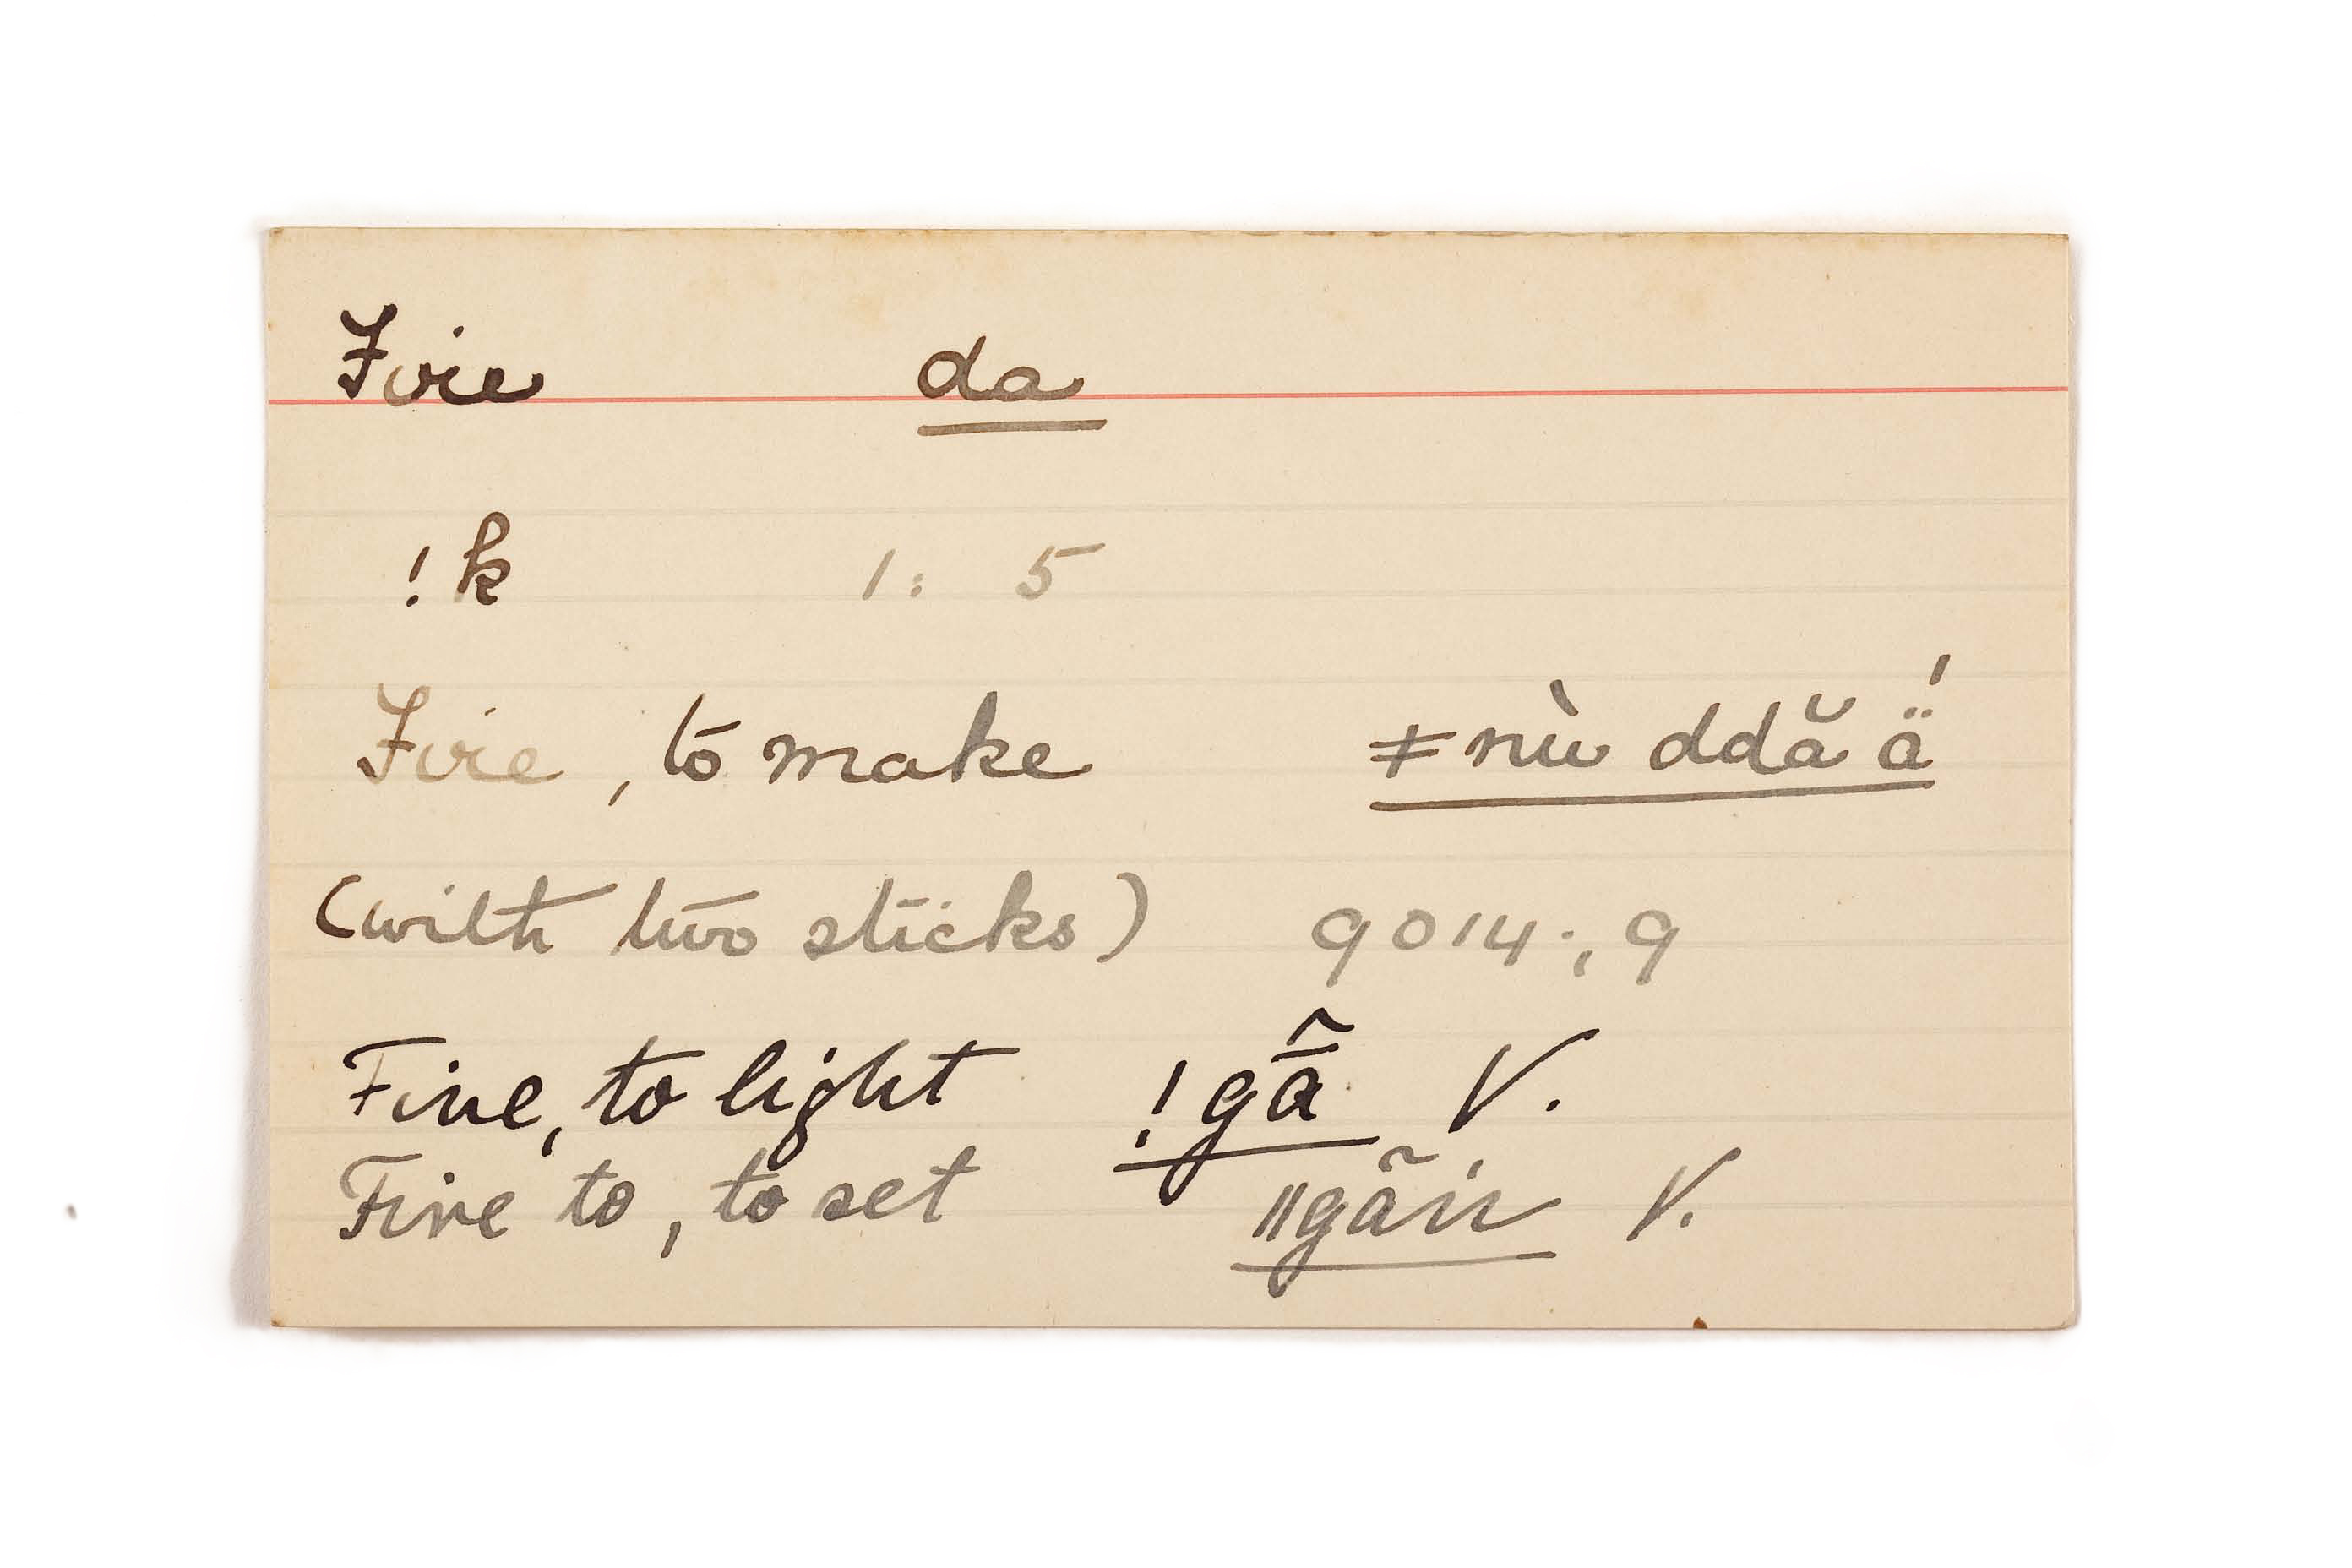 Fire da
!k 1: 5
Fire, to make ǂnù ddă ä́
(with two sticks) 9014:, 9
Fire, to light !gā̃ V.
Fire to, to set ǁgãin V.